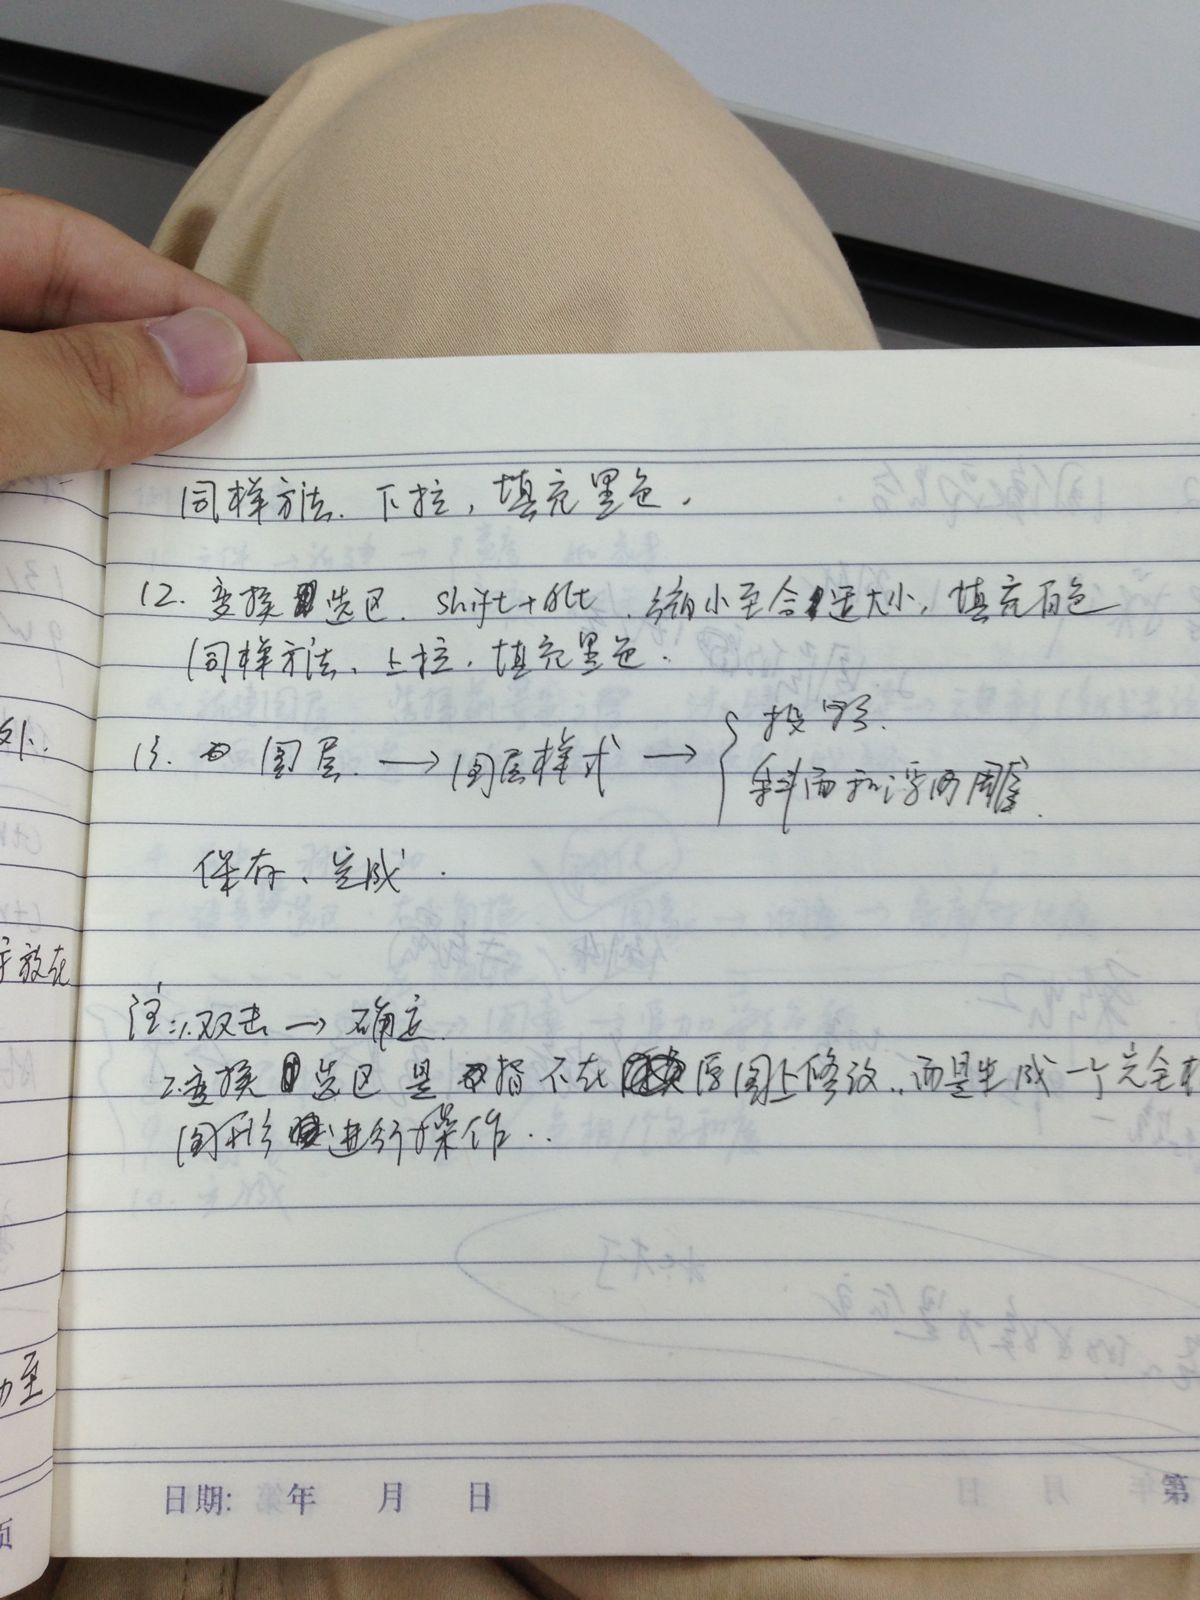 同样方法、下拉，填充黑色。
12. 变换选区、shift+Alt、缩小至合适大小，填充白色
同样方法、上拉，填充黑色.
13. 图层. → 图层样式 → { 投影.
斜面和浮雕.
保存、完成.
注:1.双击 → 确定
2.变换选区是指不在原图上修改，而是生成一个完全
图形进行操作..
外.
放在
至
日期: 年 月 日
第
页